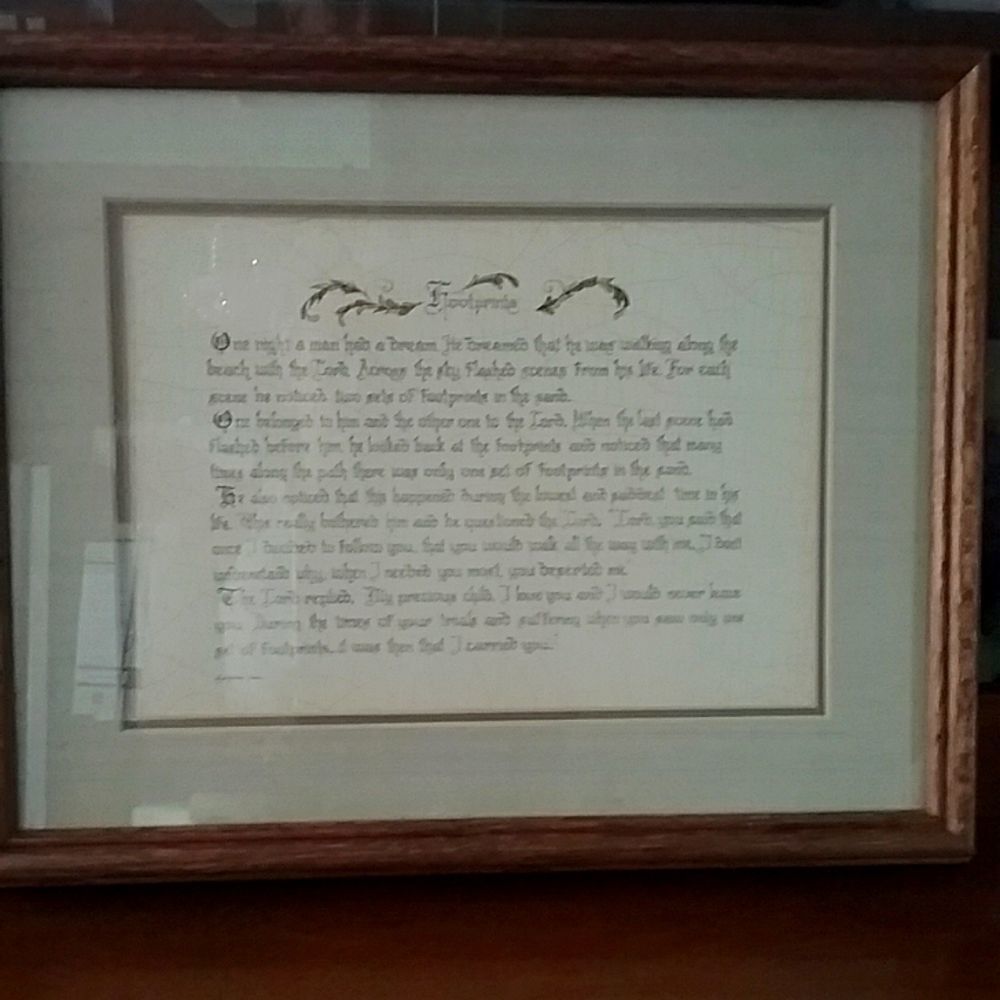 Footprints
One night a man had a dream. He dreamed that he was walking along the
beach with the Lord. Across the sky flashed scenes from his life. For each
scene he noticed two sets of footprints in the sand.
One belonged to him and the other one to the Lord. When the last scene had
flashed before him, he looked back at the footprints and noticed that many
times along the path there was only one set of footprints in the sand.
He also noticed that this happened during the lowest and saddest time in his
life. This really bothered him and he questioned the Lord. "Lord, you said that
once I decided to follow you, that you would walk all the way with me. I don't
understand why, when I needed you most, you deserted me."
The Lord replied, "My precious child, I love you and I would never leave
you. During the times of your trials and suffering when you saw only one
set of footprints...it was then that I carried you."